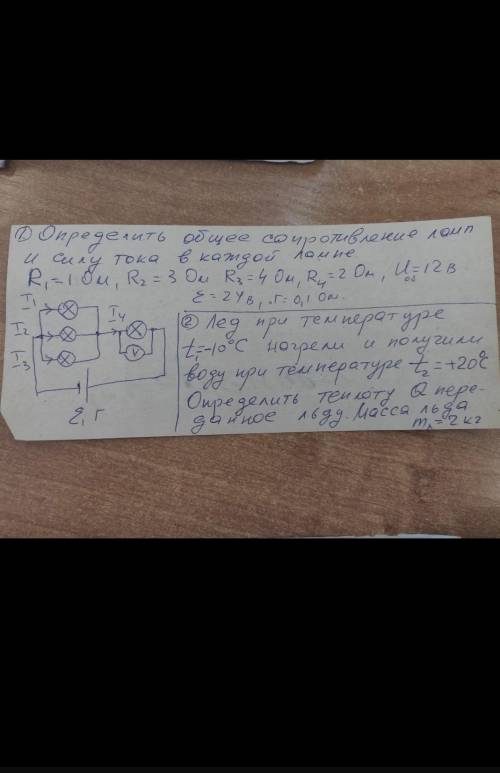 ① Определить общее сопротивление ламп
и силу тока в каждой лампе
R₁=1 Ом, R₂=3 Ом R₃=4 Ом, R₄=2 Ом, U=12 в
ε=24 в, r=0,1 Ом.
I₁
I₂
I₃
I₄
V
ε, r
② Лед при температуре
t₁=-10°C нагрели и получили
воду при температуре t₂=+20°C
Определить теплоту Q пере-
данное льду. Масса льда
m₁=2 кг